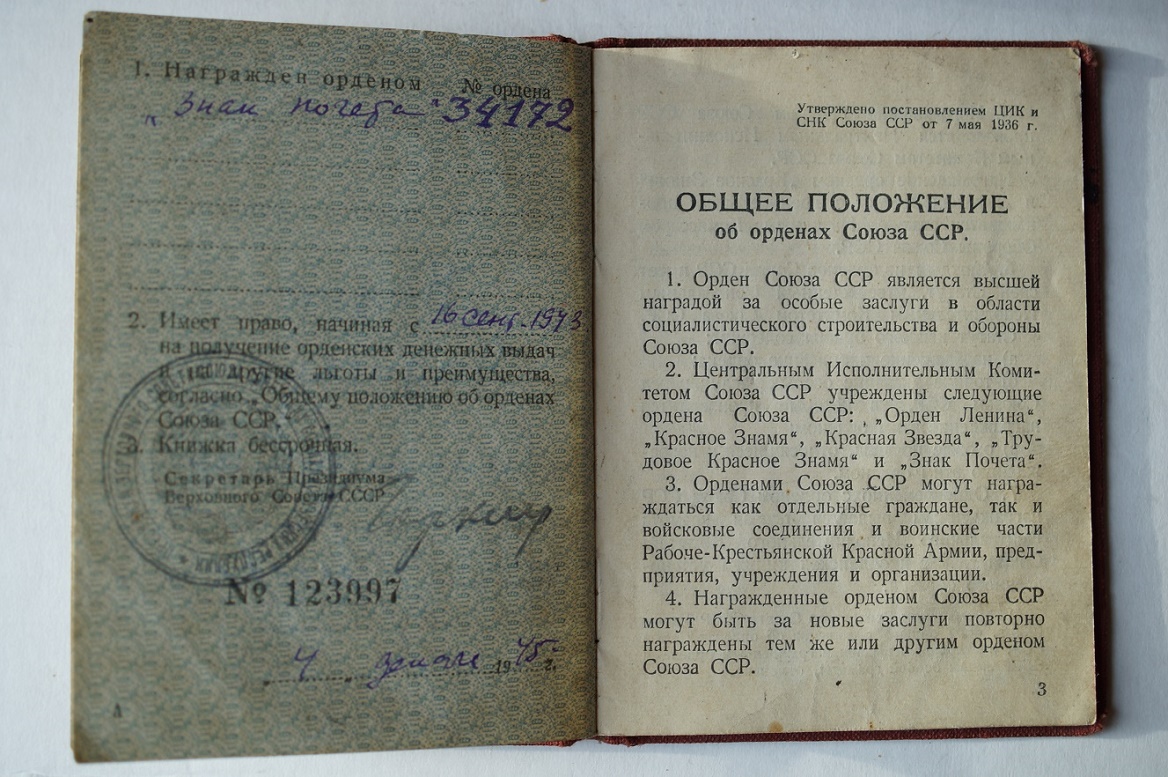 1. Награжден орденом № ордена
„Знак почета“ 34172
2. Имеет право, начиная с 16 сент. 1943
на получение орденских денежных выдач
и другие льготы и преимущества,
согласно „Общему положению об орденах
Союза ССР.
3. Книжка бессрочная.
Секретарь Президиума
Верховного Совета СССР
№ 123997
„4 1945 г.
А
Утверждено постановлением ЦИК и
СНК Союза ССР от 7 мая 1936 г.
ОБЩЕЕ ПОЛОЖЕНИЕ
об орденах Союза ССР.
1. Орден Союза ССР является высшей
наградой за особые заслуги в области
социалистического строительства и обороны
Союза ССР.
2. Центральным Исполнительным Коми-
тетом Союза ССР учреждены следующие
ордена Союза ССР: „Орден Ленина“,
„Красное Знамя“, „Красная Звезда“, „Тру-
довое Красное Знамя“ и „Знак Почета“.
3. Орденами Союза ССР могут награ-
ждаться как отдельные граждане, так и
войсковые соединения и воинские части
Рабоче-Крестьянской Красной Армии, пред-
приятия, учреждения и организации.
4. Награжденные орденом Союза ССР
могут быть за новые заслуги повторно
награждены тем же или другим орденом
Союза ССР.
3